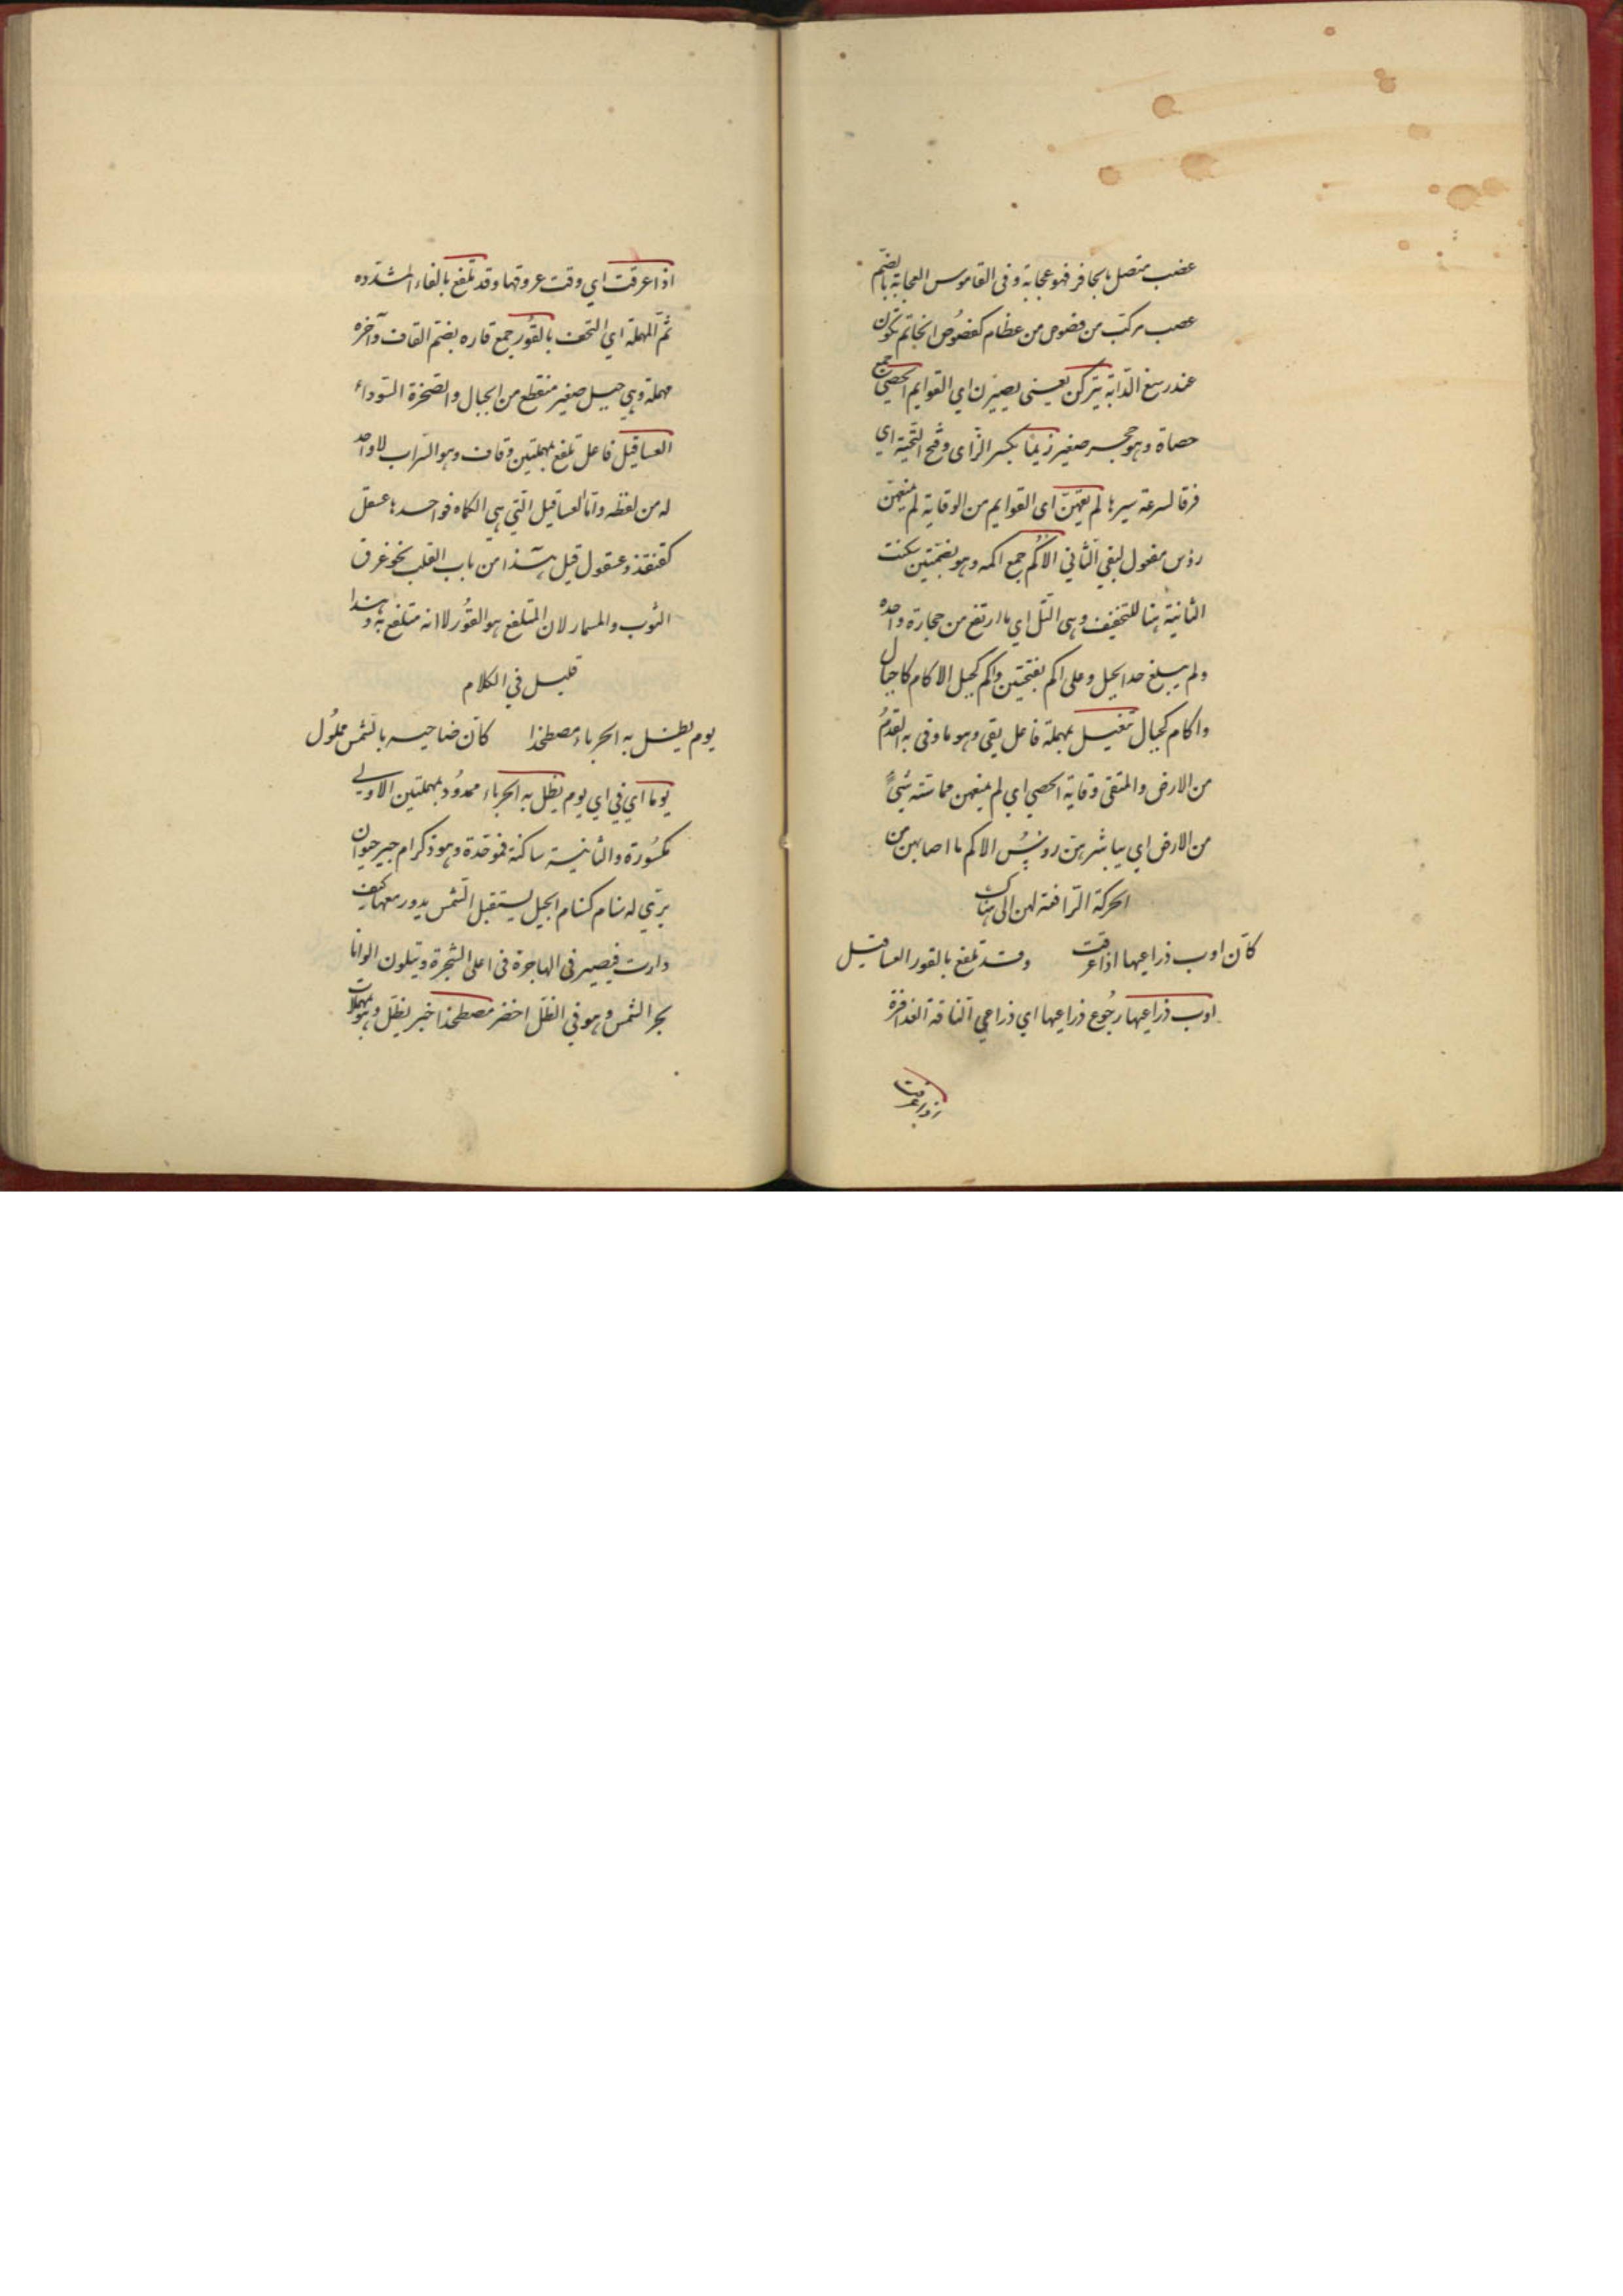 عصب متصل بالحافر فهو عجاية وفى القاموس العجاية بالضم
عصب مركب من فصوص من عظام كفصُوص الخاتم تكون
عند رسغ الدّابة يتركن يعنى يصيرن اي القوايم الحصي جمع
حصاة وهو حجر صغير زيمًا بكسر الزاى وفتح التحتية اي
فرقا لسرعة سيرها لم يقهنّ اى القوايم من الوقاية لم يمنعهن
رؤس مفعول ليقي الثاني الاكُم جمع اكمه وهو بضمتين سكنت
الثانية هنا للتخفيف وهى التل اي ما ارتفع من حجارة واحده
ولم يبلغ حد الجبل وعلى اكم بفتحتين واكم كجبل الاكام كاجبال
واكام كجبال تنعيل بمهملة فاعل يقى وهو ما وقى به القدمُ
من الارض والمتقى وقاية الحصى اي لم يمنعهن مماسّته شئً
من الارض اي يباشرهنّ روئُس الاكم ما اصابهن من
الحركة الرافعة لهن الى هناك
كاَن اوب ذراعيها اذا عرقت وقد تلفع بالقور العساقيل
اوب ذراعيها رجُوع ذراعيها اي ذراعي الناقة العذافرة
اذا عرقت
اذا عرقت اي وقت عروقها وقد تلفع بالفاء المشدّده
ثمّ المهملة اي التحف بالقوُر جمع قاره بضم القاف وآخره
مهملة وهي جبيل صغير منقطع من الجبال والصخرة السّوداء
العساقيل فاعل تلفع بمهملتين وقاف وهو السّراب لا واحد
له من لفظه وامّا العساقيل التي هي الكماه فواحدها عسقل
كقنفذ وعسقول قيل هذا من باب القلب نحو غرق
الثوب والمسمار لان المتلفع هو القوُر لا انه متلفع به وهذا
قليل في الكلام
يوم يظل به الحرباء مصطخذا كاَن ضاحيه بالشمس مملوُل
يوما اي في اي يوم يظل به الحرباء ممدوُد بمهملتين الاولى
مكسُورة والثانية ساكنة فموحّدة وهو ذكر ام حبير حيوان
برّي له سنام كسنام الجمل يستقبل الشمس يدور معها كيف
دارت فيصير فى الهاجرة فى اعلى الشجرة ويتلون الوانا
بحر الشمس وهو في الظل اخضر مصطخذا خبر يظل وهو بمهملات